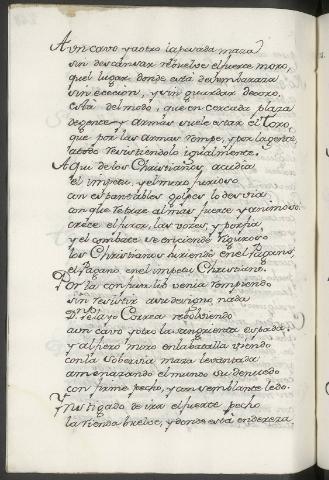 A un cavo y aotro la pesada maza
sin descansar rebuelve el fuerte moro,
quel lugar donde está desembaraza
sin ececion, y sin guardar decoro,
està del modo, que en cercada plaza
de gente y armas suele estar el Toro,
que por las armas rompe, y por la gente,
a todo resistiendolo igualmente.
Aqui de los Christianos acudia
el impetu, y el muro furioso
con espantables golpes lo desvia
con que retrae al mas fuerte y animoso
crece el furor, las voces, y porfia,
y el combate se enciende riguroso
los Christianos hiriendo en el Pagano,
el Pagano en el impetu Christiano.
Por la confusa lid venia rompiendo
sin resistir a su designo nada
D. Pelayo Correa rebolviendo
a un cavo y otro la sangrienta espada:
y al fiero moro en la batalla viendo
con la sobervia maza levantada
amenazando el mundo su denuedo
con firme pecho, y con semblante ledo.
Ynstigado de ira el fuerte pecho
la rienda buelve, y donde està endereza.